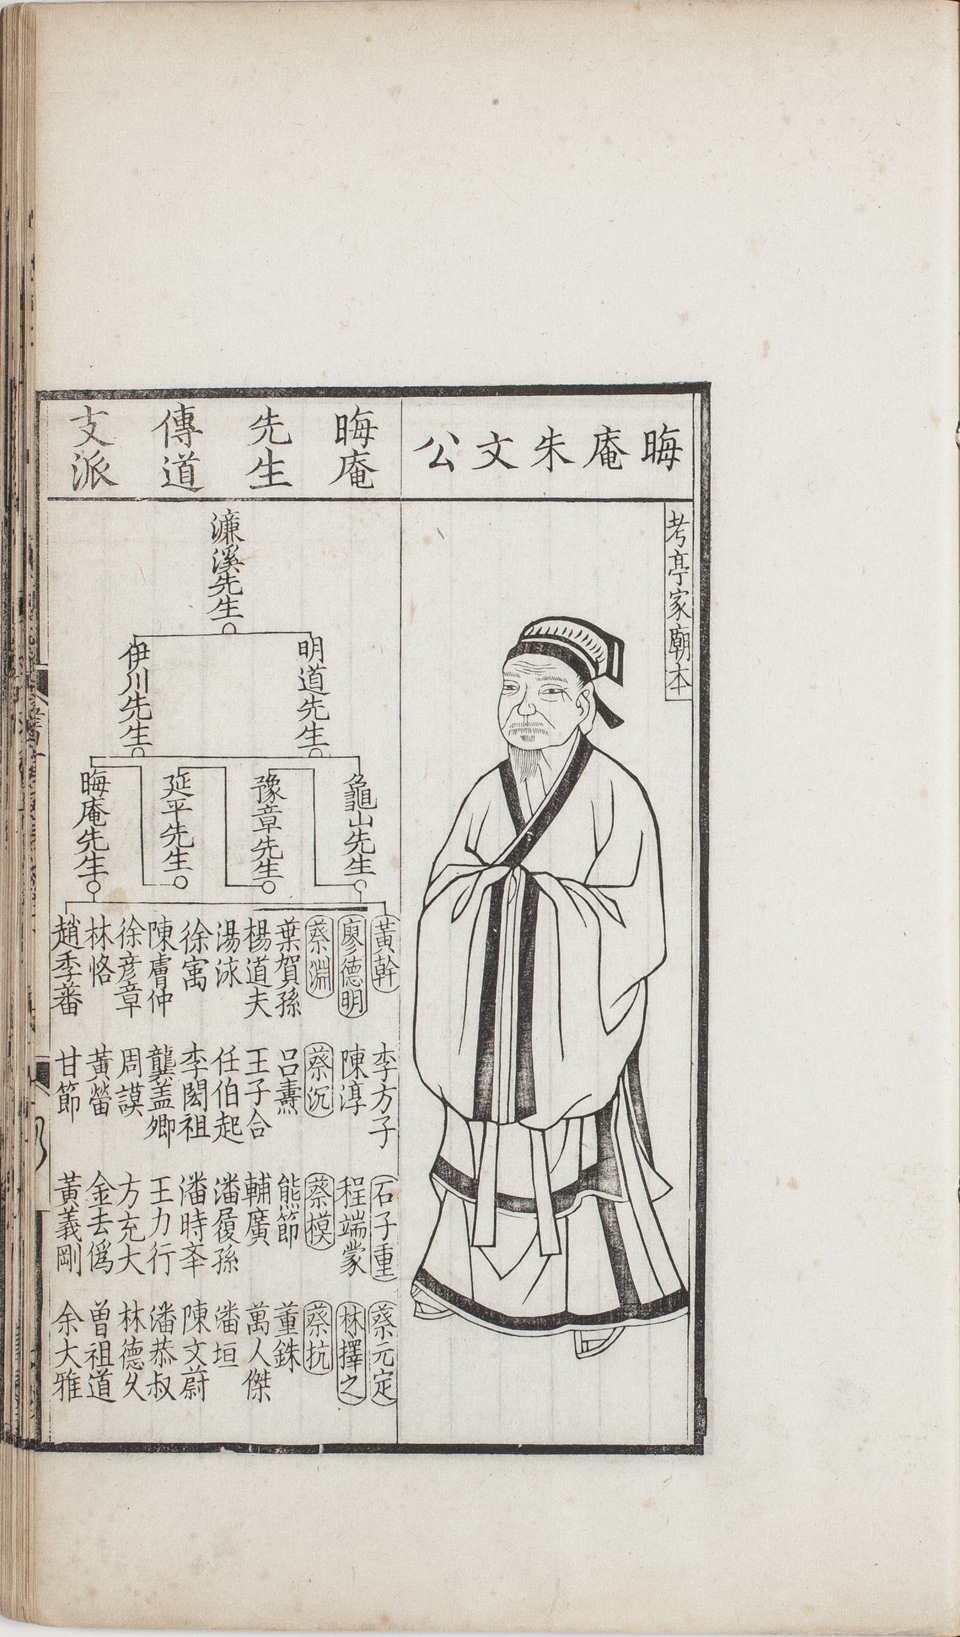 晦庵朱文公
考亭家廟本
晦庵
先生
傳道
支派
濂溪先生
明道先生
伊川先生
龜山先生
豫章先生
延平先生
晦庵先生
黃幹
廖德明
蔡淵
葉賀孫
楊道夫
湯泳
徐㝢
陳膚仲
徐彦章
林恪
趙季蕃
李方子
陳淳
蔡沉
呂燾
王子合
任伯起
李閎祖
龔盖卿
周謨
黃㽦
甘節
石子重
程端蒙
蔡模
熊節
輔廣
潘履孫
潘時㪯
王力行
方充大
金去僞
黃義剛
蔡元定
林擇之
蔡抗
董銖
萬人傑
潘垣
陳文蔚
潘恭叔
林德久
曾祖道
余大雅